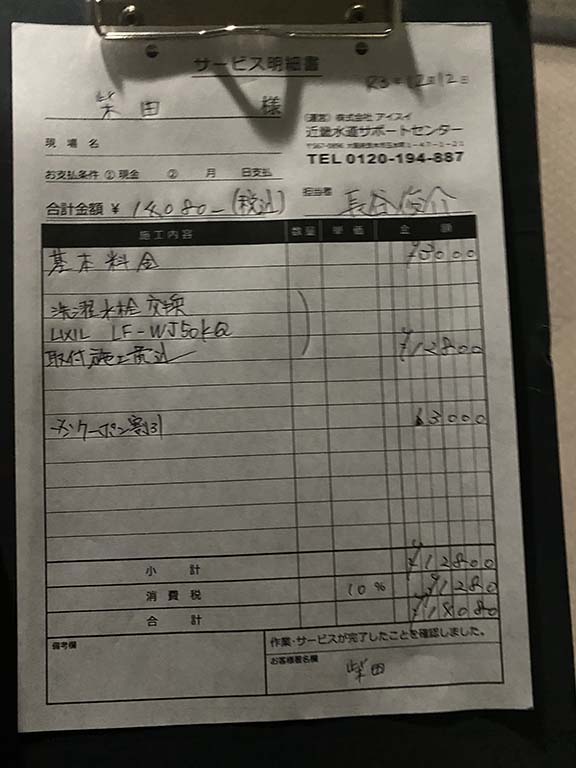 サービス明細書
R3年12月12日
柴田 様
(運営) 株式会社 アイスイ
近畿水道サポートセンター
TEL 0120-194-887
現場名
お支払条件 ① 現金 ② 月 日支払
担当者
合計金額 ¥ 14080- (税込)
施工内容 数量 単価 金額
基本料金 ¥3000
洗濯水栓交換
LIXIL LF-WJ50KQ
取付施工費込 ¥12800
メンクーポン割引 3000
小計 ¥12800
消費税 10% ¥1280
合計 ¥18080
備考欄
作業・サービスが完了したことを確認しました。
お客様署名欄
柴田